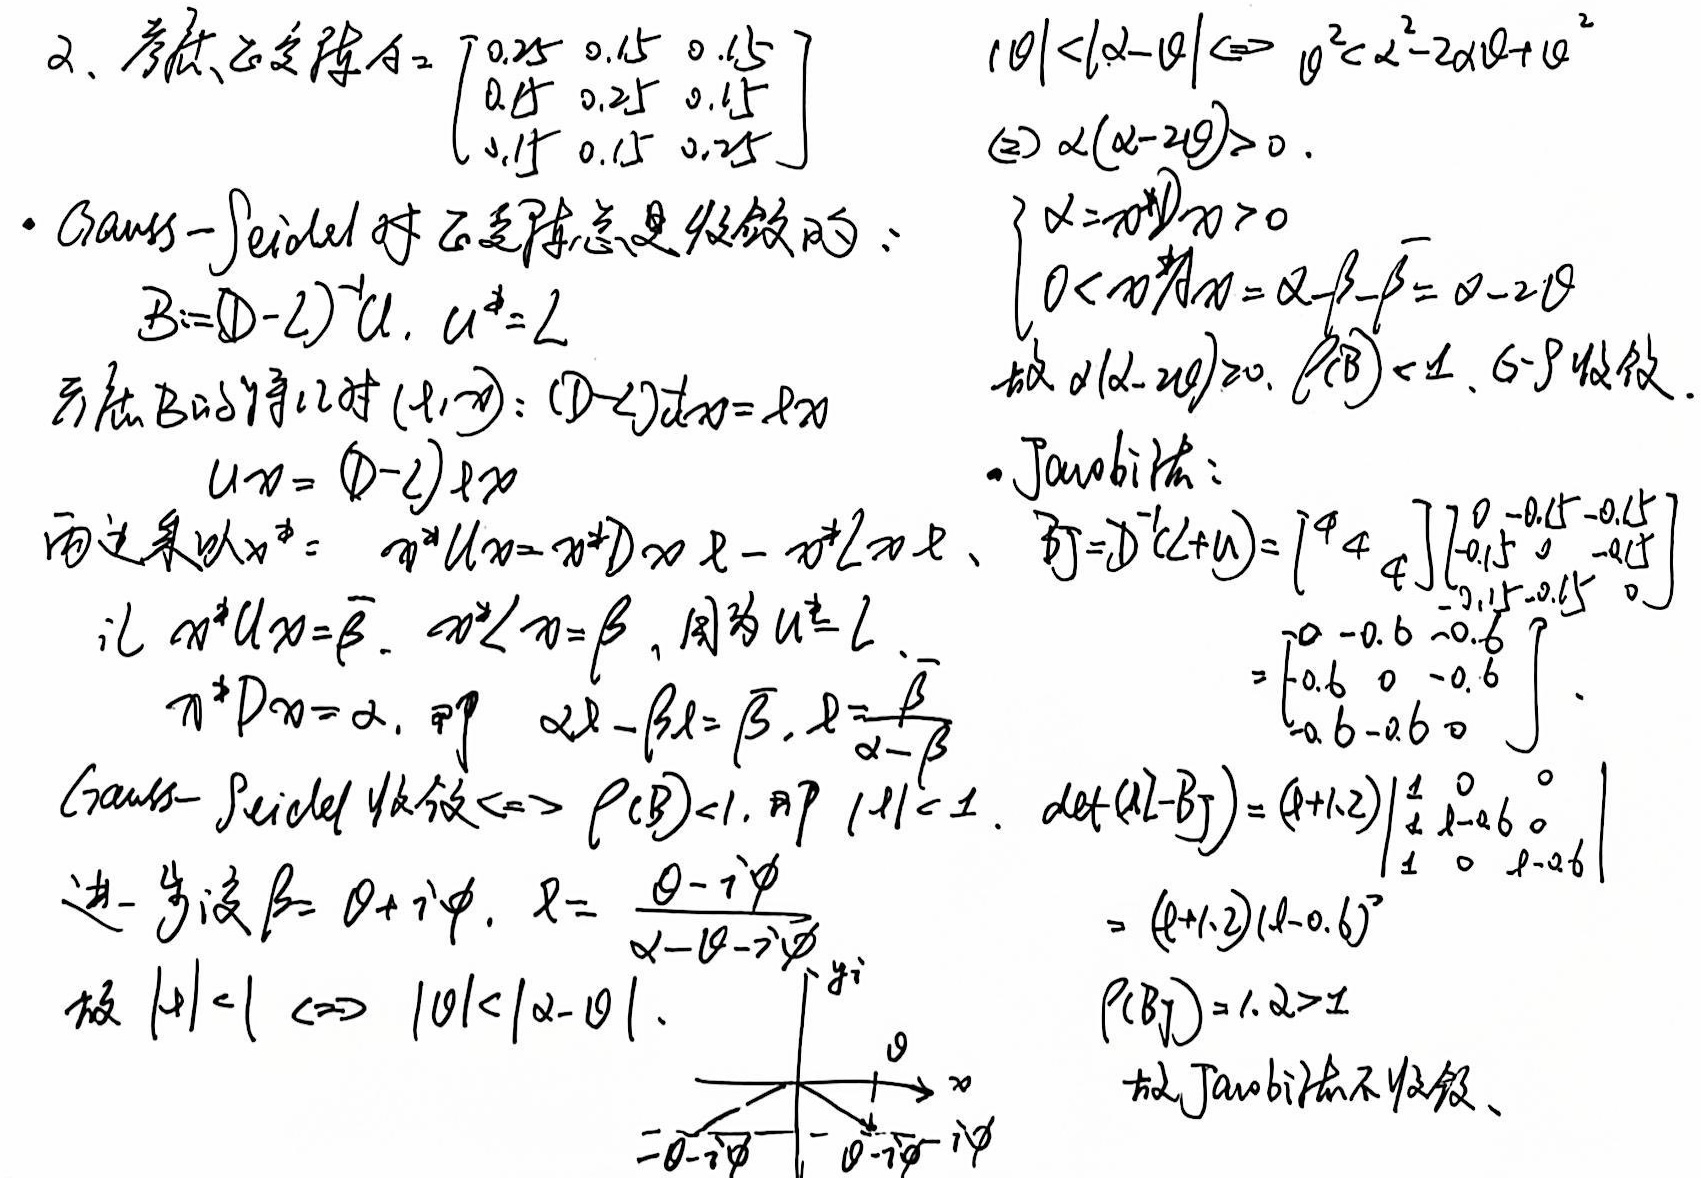 2、考虑正定阵A=[0.25 0.15 0.15
0.15 0.25 0.15
0.15 0.15 0.25]
· Gauss-Seidel对正定阵总是收敛的:
B:=(D-L)⁻¹U. U*=L
考虑B的特征对(λ,x): (D-L)⁻¹Ux=λx
Ux=(D-L)λx
两边乘以x*: x*Ux=x*Dxλ-x*Lxλ、
记 x*Ux=β̄. x*Lx=β, 因为U*=L.
x*Dx=α. 即 αλ-βλ=β̄. λ=β̄/(α-β)
Gauss-Seidel收敛<=>ρ(B)<1. 即 |λ|<1.
进一步设β=θ+iφ. λ=(θ-iφ)/(α-θ-iφ)
故|λ|<1 <=> |θ|<|α-θ|.
yi
θ
x
-θ-iφ
θ-iφ
-iφ
|θ|<|α-θ|<=> θ²<α²-2αθ+θ²
<=> α(α-2θ)>0.
{ α=x*Dx>0
0<x*Ax=α-β-β̄=α-2θ
故α(α-2θ)>0. ρ(B)<1、G-S收敛.
· Jacobi法:
BJ=D⁻¹(L+U)=[4 4 4][0 -0.15 -0.15
-0.15 0 -0.15
-0.15 -0.15 0]
=[0 -0.6 -0.6
-0.6 0 -0.6
-0.6 -0.6 0].
det(λI-BJ)=(λ+1.2)|1 0 0
1 λ-0.6 0
1 0 λ-0.6|
=(λ+1.2)(λ-0.6)²
ρ(BJ)=1.2>1
故Jacobi法不收敛、